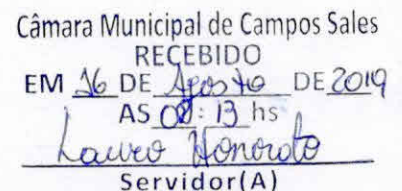 Câmara Municipal de Campos Sales
RECEBIDO
EM 16 DE Agosto DE 2019
AS 08:13 hs
Lauro Honorato
Servidor(A)